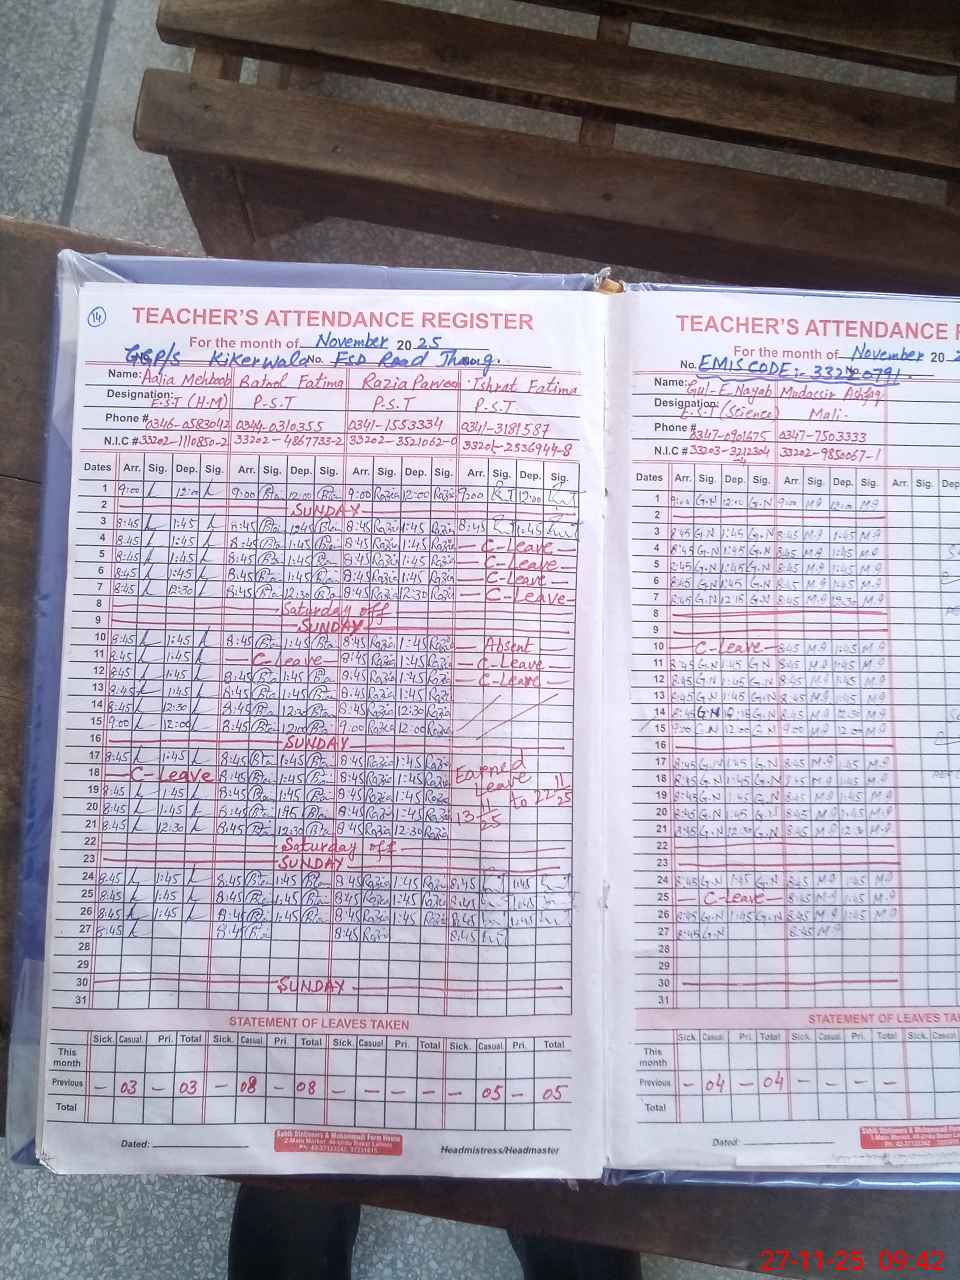 14
TEACHER'S ATTENDANCE REGISTER
For the month of November 2025
GGP/S Kikerwala No. FSD Road Jhang.
Name: Aalia Mehboob Batool Fatima Razia Parveen Ishrat Fatima
Designation: E.S.T (H.M) P.S.T P.S.T P.S.T
Phone # 0346-0583042 0344-0310355 0341-1553334 0341-3181587
N.I.C # 33202-1110850-2 33202-4867733-2 33202-3521062-0 33202-2536944-8
Dates Arr. Sig. Dep. Sig. Arr. Sig. Dep. Sig. Arr. Sig. Dep. Sig. Arr. Sig. Dep. Sig.
1 9:00 12:00 9:00 12:00 9:00 Razia 12:00 Razia 9:00 12:00
2 SUNDAY
3 8:45 1:45 8:45 1:45 8:45 Razia 1:45 Razia 8:45 1:45
4 8:45 1:45 8:45 1:45 8:45 Razia 1:45 Razia C-Leave
5 8:45 1:45 8:45 1:45 8:45 Razia 1:45 Razia C-Leave
6 8:45 1:45 8:45 1:45 8:45 Razia 1:45 Razia C-Leave
7 8:45 12:30 8:45 12:30 8:45 Razia 12:30 Razia C-Leave
8 Saturday off
9 SUNDAY
10 8:45 1:45 8:45 1:45 8:45 Razia 1:45 Razia Absent
11 8:45 1:45 C-Leave 8:45 Razia 1:45 Razia C-Leave
12 8:45 1:45 8:45 1:45 8:45 Razia 1:45 Razia C-Leave
13 8:45 1:45 8:45 1:45 8:45 Razia 1:45 Razia
14 8:45 12:30 8:45 12:30 8:45 Razia 12:30 Razia
15 9:00 12:00 8:45 12:00 9:00 Razia 12:00 Razia
16 SUNDAY
17 8:45 1:45 8:45 1:45 8:45 Razia 1:45 Razia Earned
18 C-Leave 8:45 1:45 8:45 Razia 1:45 Razia Leave
19 8:45 1:45 8:45 1:45 8:45 Razia 1:45 Razia to 22-11/25
20 8:45 1:45 8:45 1:45 8:45 Razia 1:45 Razia 13-11/25
21 8:45 12:30 8:45 12:30 8:45 Razia 12:30 Razia
22 Saturday off
23 SUNDAY
24 8:45 1:45 8:45 1:45 8:45 Razia 1:45 Razia 8:45 1:45
25 8:45 1:45 8:45 1:45 8:45 Razia 1:45 Razia 8:45 1:45
26 8:45 1:45 8:45 1:45 8:45 Razia 1:45 Razia 8:45 1:45
27 8:45 8:45 8:45 Razia 8:45
28
29
30 SUNDAY
31
STATEMENT OF LEAVES TAKEN
Sick. Casual Pri. Total Sick. Casual. Pri. Total Sick. Casual. Pri. Total Sick. Casual. Pri. Total
This month
Previous – 03 – 03 – 08 – 08 – – – – – 05 – 05
Total
Dated:
Sahib Stationers & Mohammadi Form House
Headmistress/Headmaster
TEACHER'S ATTENDANCE
For the month of November 20
No. EMIS CODE:- 33220791.
Name: Gul-E-Nayab Mudassir Ashfaq
Designation: E.S.T (Science) Mali.
Phone # 0347-0901675 0347-7503333
N.I.C # 33203-3212304 33202-9850067-1
Dates Arr. Sig. Dep. Sig. Arr. Sig. Dep. Sig. Arr. Sig.
1 9:00 G.N 12:00 G.N 9:00 M.A 12:00 M.A
2
3 8:45 G.N 1:45 G.N 8:45 M.A 1:45 M.A
4 8:45 G.N 1:45 G.N 8:45 M.A 1:45 M.A
5 8:45 G.N 1:45 G.N 8:45 M.A 1:45 M.A
6 8:45 G.N 1:45 G.N 8:45 M.A 1:45 M.A
7 8:45 G.N 12:15 G.N 8:45 M.A 12:30 M.A
8
9
10 C-Leave 8:45 M.A 1:45 M.A
11 8:45 G.N 1:45 G.N 8:45 M.A 1:45 M.A
12 8:45 G.N 1:45 G.N 8:45 M.A 1:45 M.A
13 8:45 G.N 1:45 G.N 8:45 M.A 1:45 M.A
14 8:45 G.N G.N 8:45 M.A 12:30 M.A
15 9:00 G.N 12:00 G.N 9:00 M.A 12:00 M.A
16
17 8:45 G.N 1:45 G.N 8:45 M.A 1:45 M.A
18 8:45 G.N 1:45 G.N 8:45 M.A 1:45 M.A
19 8:45 G.N 1:45 G.N 8:45 M.A 1:45 M.A
20 8:45 G.N 1:45 G.N 8:45 M.A 1:45 M.A
21 8:45 G.N 12:30 G.N 8:45 M.A 12:30 M.A
22
23
24 8:45 G.N 1:45 G.N 8:45 M.A 1:45 M.A
25 C-Leave 8:45 M.A 1:45 M.A
26 8:45 G.N 1:45 G.N 8:45 M.A 1:45 M.A
27 8:45 G.N 8:45 M.A
28
29
30
31
STATEMENT OF LEAVES TA
Sick. Casual Pri. Total Sick. Casual. Pri. Total Sick. Casual.
This month
Previous – 04 – 04 – – – –
Total
Dated:
27-11-25 09:42